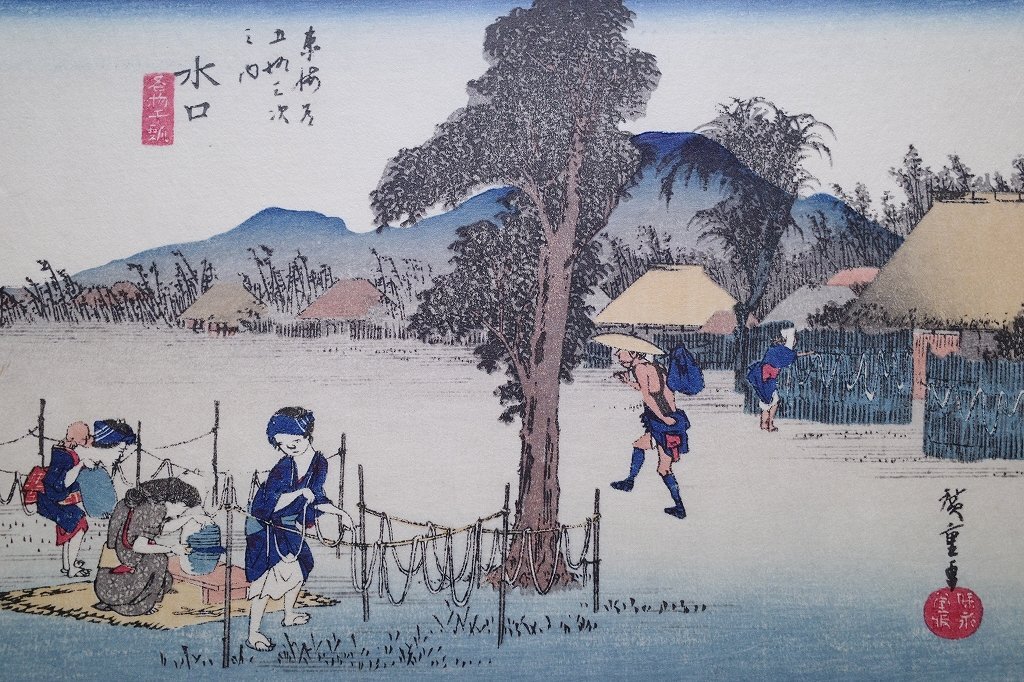 東海道
五拾三次
之内
水口
名物干瓢
廣重画
保永
堂版